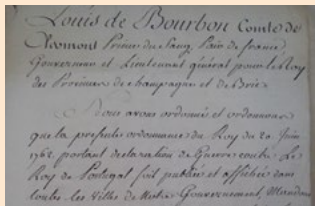 Louis de Bourbon Comte de
Clermont Prince du Sang, Pair de france,
Gouverneur et Lieutenant général pour le Roy
des Provinces de champagne et de Brie
Nous avons ordonné et ordonnons
que la presente ordonnance du Roy du 20 Juin
1762. portant declaration de Guerre contre Le
Roy de Portugal soit publiée et affichée dans
toutes les Villes de Notre Gouvernement, Mandons